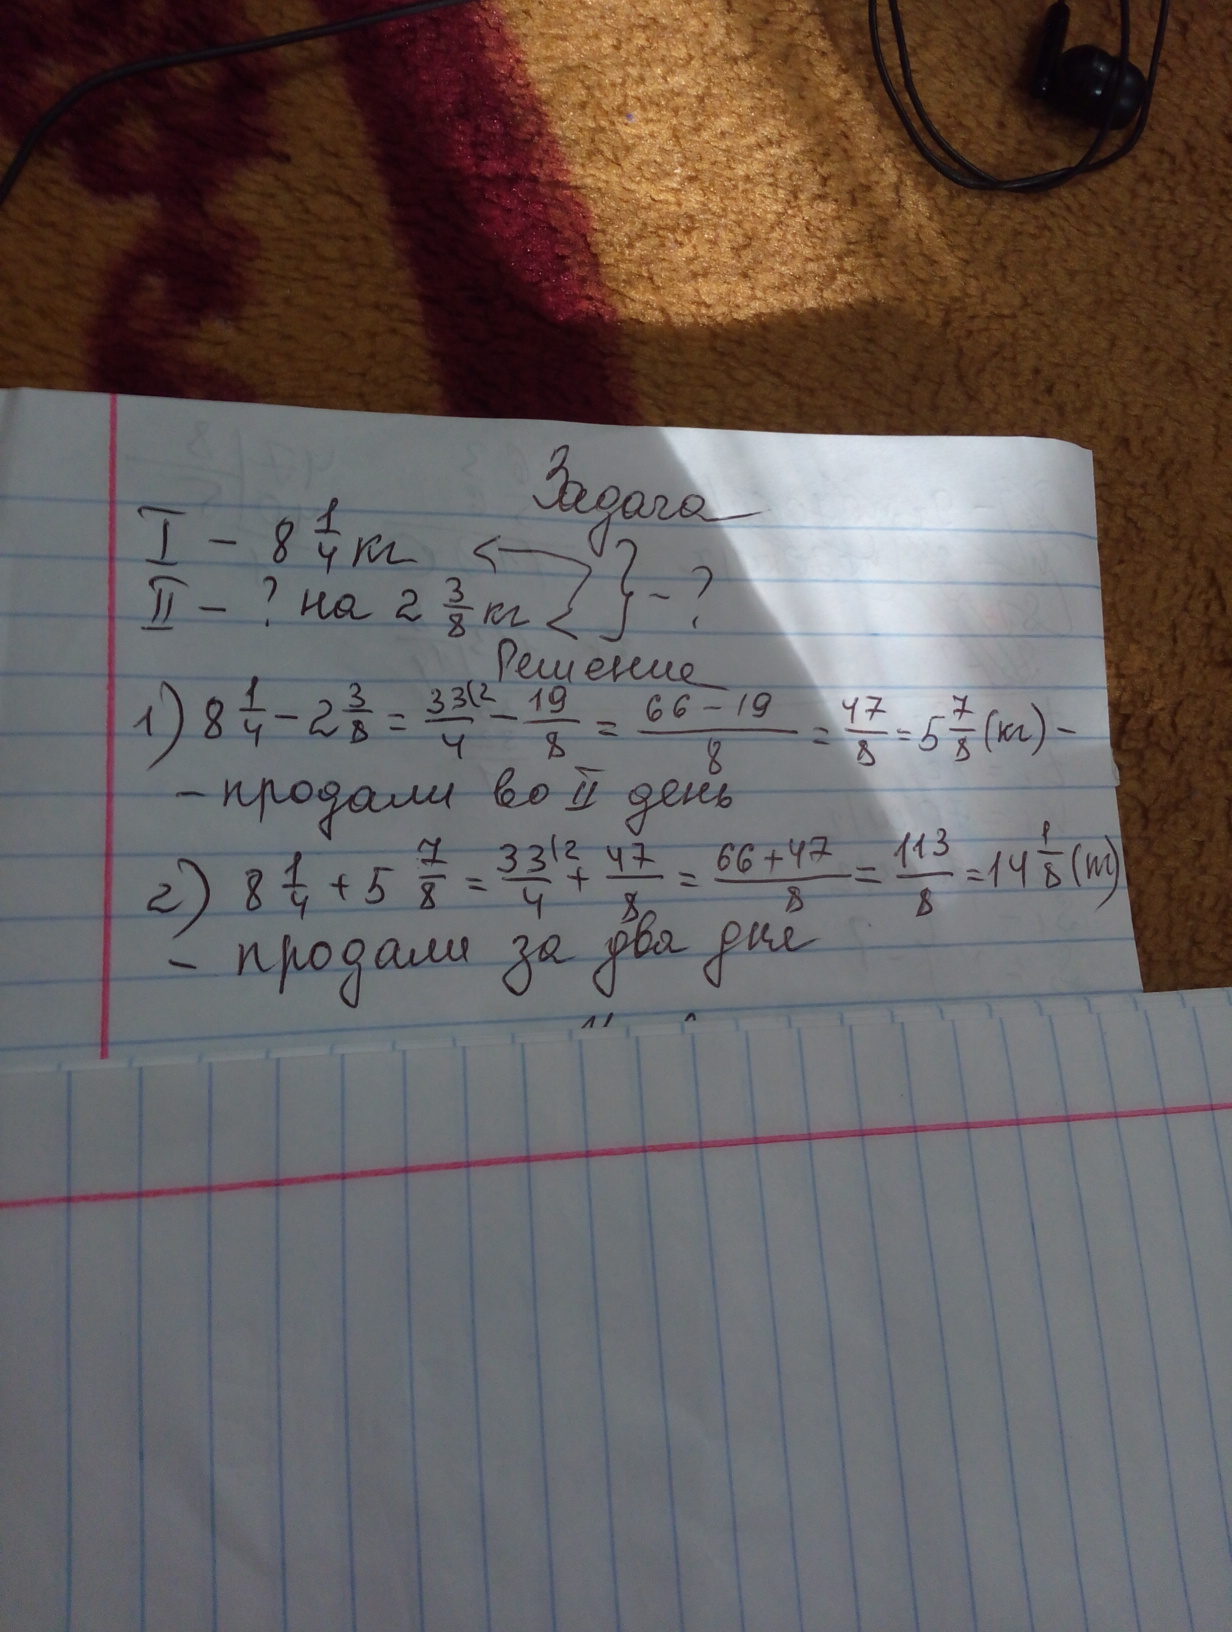 Задача
I - 8 1/4 кг
II - ? на 2 3/8 кг < } - ?
Решение
1) 8 1/4 - 2 3/8 = 33/4 (2 - 19/8 = 66-19/8 = 47/8 = 5 7/8 (кг) -
- продали во II день
2) 8 1/4 + 5 7/8 = 33/4 (2 + 47/8 = 66+47/8 = 113/8 = 14 1/8 (т)
- продали за два дне